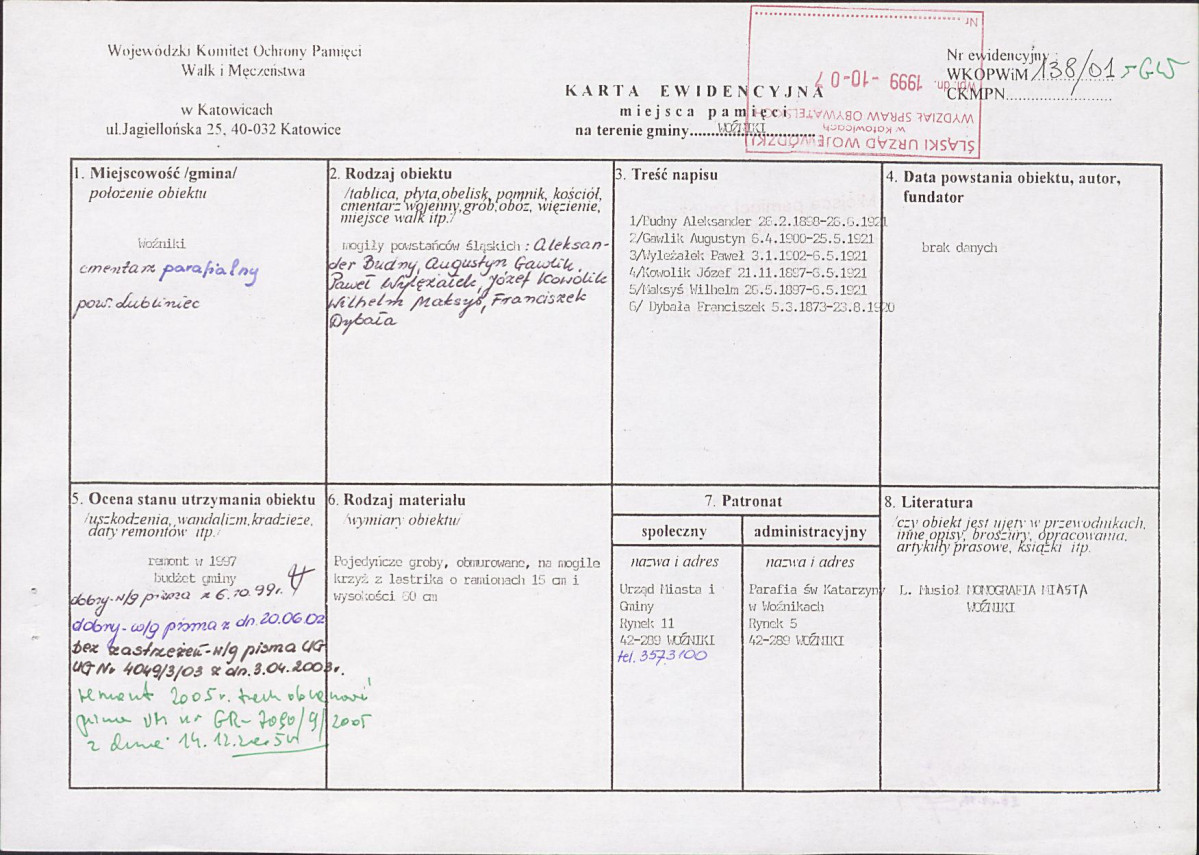 Wojewódzki Komitet Ochrony Pamięci
Walk i Męczeństwa
w Katowicach
ul.Jagiellońska 25, 40-032 Katowice
KARTA EWIDENCYJNA
miejsca pamięci
na terenie gminy WOŹNIKI
Nr
Wpł. dn. 1999 -10- 0 7
WYDZIAŁ SPRAW OBYWATELSKICH
w Katowicach
ŚLĄSKI URZĄD WOJEWÓDZKI
Nr ewidencyjny :
WKOPWiM 138/01
CKMPN
1. Miejscowość /gmina/
położenie obiektu
Woźniki
cmentarz parafialny
pow. Lubliniec
2. Rodzaj obiektu
/tablica, płyta,obelisk, pomnik, kościół,
cmentarz wojenny,grób,obóz, więzienie,
miejsce walk itp./
mogiły powstańców śląskich : Aleksan-
der Budny, Augustyn Gawlik,
Paweł Wyleżałek, Józef Kowolik
Wilhelm Maksyś, Franciszek
Dybała
3. Treść napisu
1/Budny Aleksander 26.2.1898-26.6.1921
2/Gawlik Augustyn 6.4.1900-25.5.1921
3/Wyleżałek Paweł 3.1.1902-6.5.1921
4/Kowolik Józef 21.11.1897-6.5.1921
5/Maksyś Wilhelm 26.5.1897-6.5.1921
6/ Dybała Franciszek 5.3.1873-23.8.1920
4. Data powstania obiektu, autor,
fundator
brak danych
5. Ocena stanu utrzymania obiektu
/uszkodzenia, wandalizm,kradzieże,
daty remontów itp./
remont w 1997
budżet gminy
dobry-w/g pisma z 6.10.99r.
dobry - w/g pisma z dn. 20.06.02
bez zastrzeżeń-w/g pisma UG
UG Nr 4049/3/03 z dn. 3.04.2003r.
remont 2005r.
pismo UM nr GR-7090/9/2005
z dnia 14.12.
6. Rodzaj materiału
/wymiary obiektu/
Pojedyńcze groby, obmurowane, na mogile
krzyż z lastrika o ramionach 15 cm i
wysokości 80 cm
7. Patronat
społeczny
nazwa i adres
Urząd Miasta i
Gminy
Rynek 11
42-289 WOŹNIKI
tel. 3573100
administracyjny
nazwa i adres
Parafia św Katarzyny
w Woźnikach
Rynek 5
42-289 WOŹNIKI
8. Literatura
/czy obiekt jest ujęty w przewodnikach,
inne opisy, broszury, opracowania,
artykuły prasowe, książki itp.
L. Musioł MONOGRAFIA MIASTA
WOŹNIKI